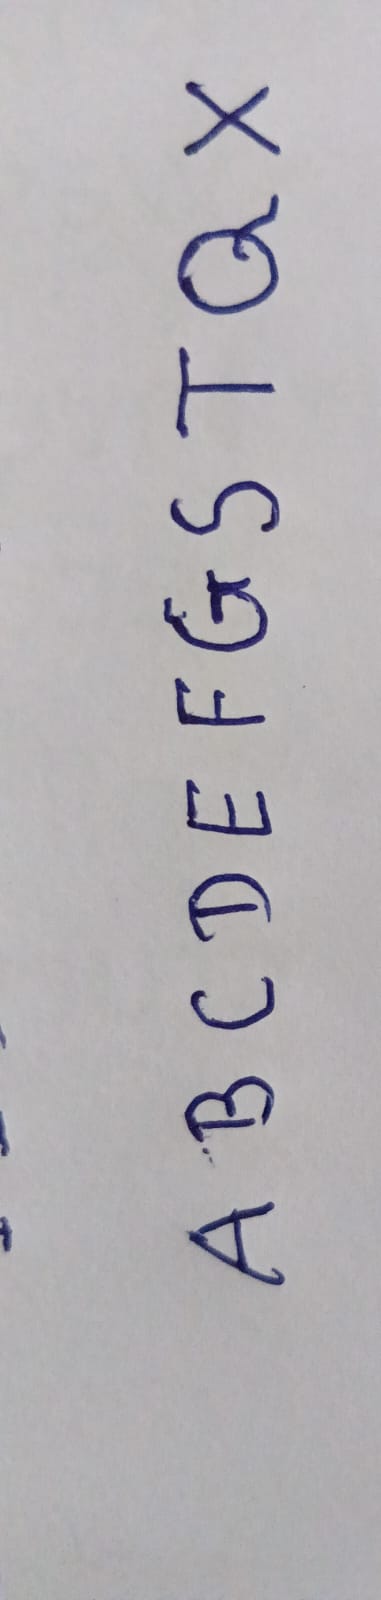 A B C D E F G S T Q X